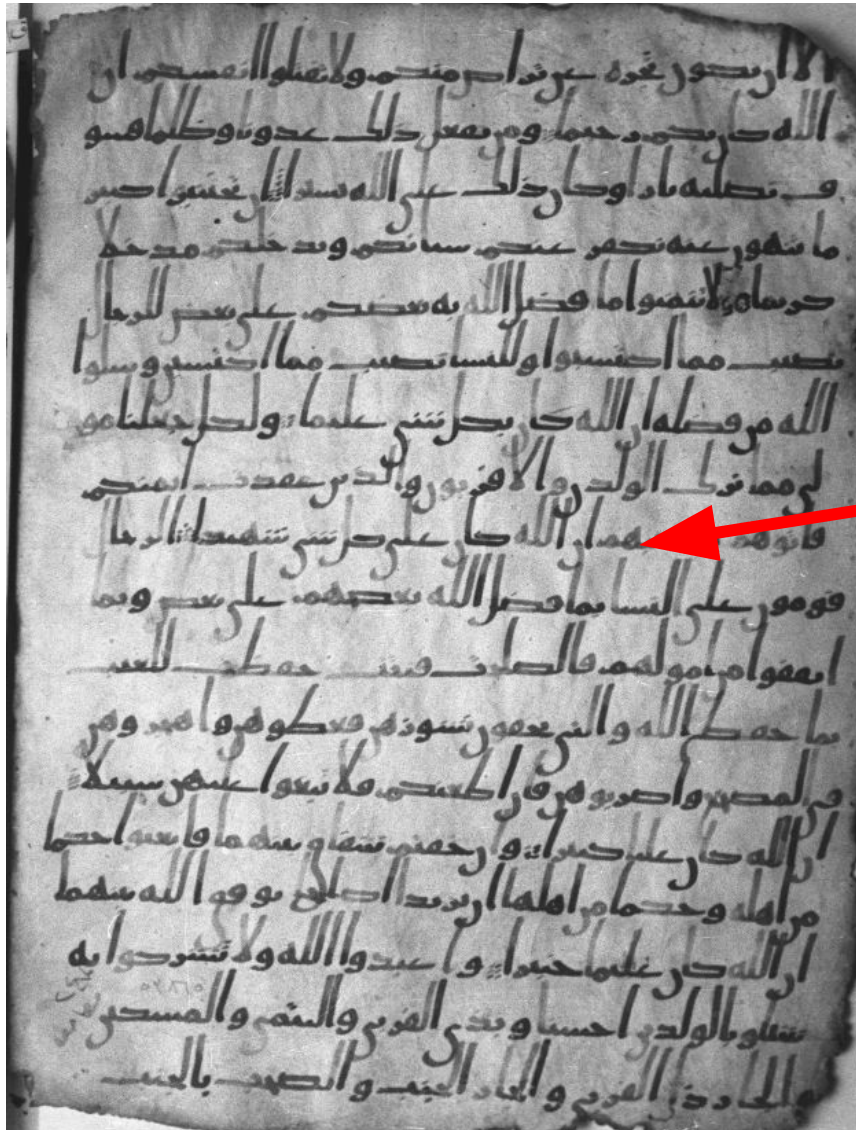 الا ان تكون تجره عن تراض منكم ولا تقتلوا انفسكم ان
الله كان بكم رحيما ومن يفعل ذلك عدونا وظلما فسو
ف نصليه نارا وكان ذلك على الله يسيرا ان تجتنبوا كبير
ما تنهون عنه نكفر عنكم سياتكم وندخلكم مدخلا
كريما ولا تتمنوا ما فضل الله به بعضكم على بعض للرجال
نصيب مما اكتسبوا وللنسا نصيب مما اكتسبن وسلوا
الله من فضله ان الله كان بكل شي عليما ولكل جعلنا مو
لي مما ترك الولدن والاقربون والذين عقدت ايمنكم
فاتوهم ان الله كان على كل شي شهيدا الرجال
قومون على النسا بما فضل الله بعضهم على بعض وبما
انفقوا من امولهم فالصلحت قنتت حفظت للغيب
بما حفظ الله والتي تخفون نشوزهن فعظوهن واهجروهن
في المضجع واضربوهن فان اطعنكم فلا تبغوا عليهن سبيلا
ان الله كان عليا كبيرا وان خفتم شقاق بينهما فابعثوا حكما
من اهله وحكما من اهلها ان يريدا اصلحا يوفق الله بينهما
ان الله كان عليما خبيرا واعبدوا الله ولا تشركوا به
شيا وبالولدين احسنا وبذي القربى واليتمى والمسكين
والجار ذي القربى والجار الجنب والصحب بالجنب